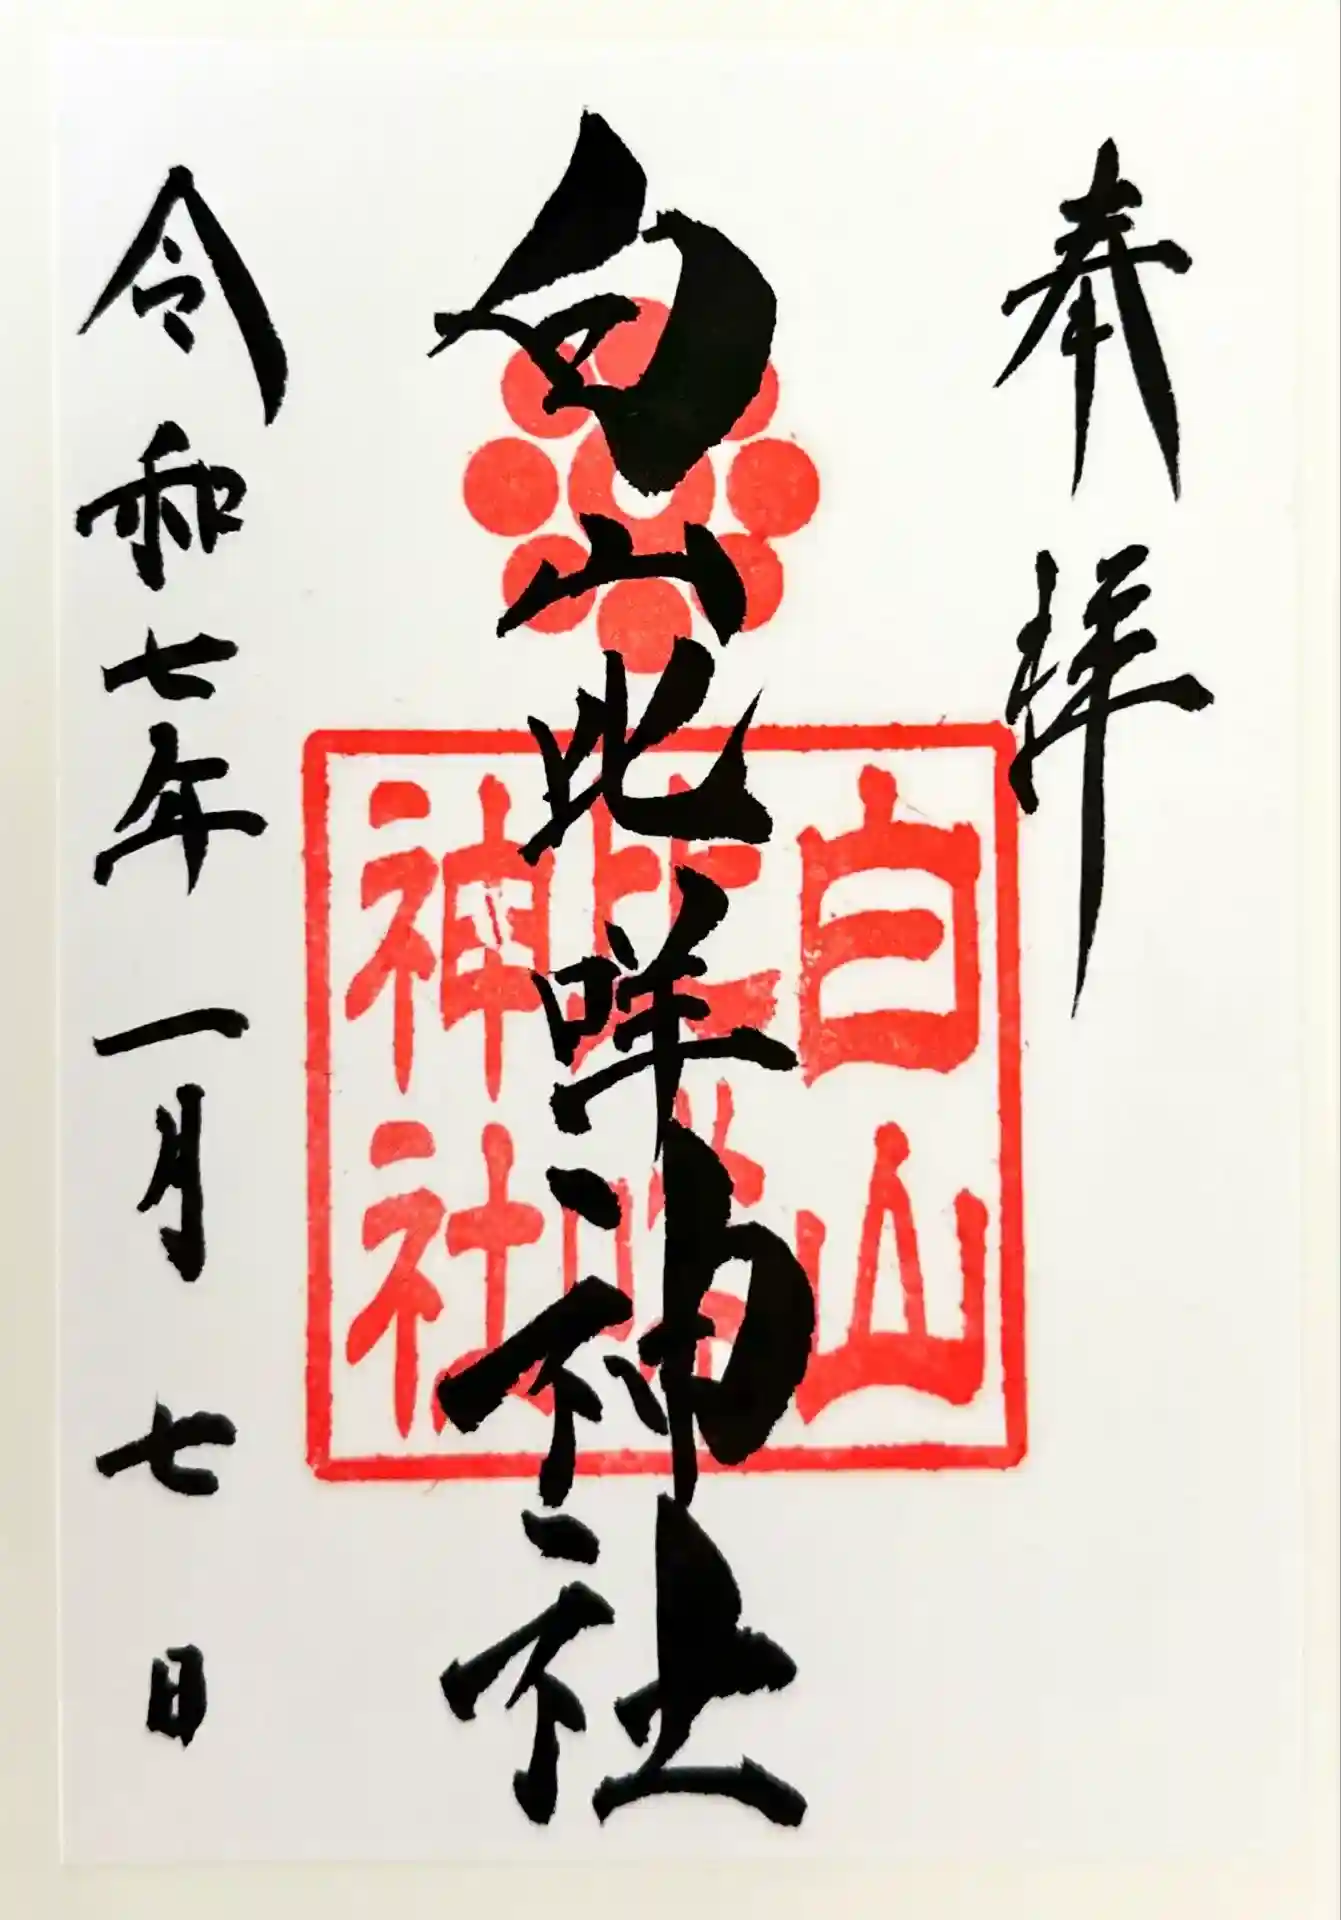 奉拝
白山比咩神社
白山
比咩
神社
令和七年一月七日